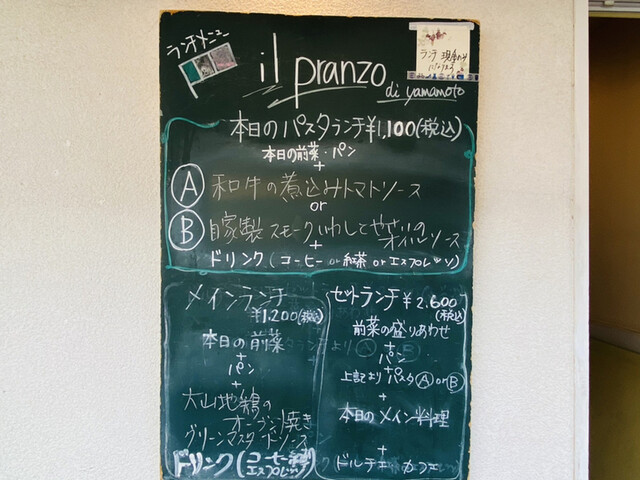 ランチメニュー
il pranzo
di yamamoto
ランチ 現金のみ
になります
本日のパスタランチ¥1,100(税込)
本日の前菜・パン
+
A 和牛の煮込みトマトソース
or
B 自家製 スモークいわしと野菜のソース
+
ドリンク(コーヒー or 紅茶 or エスプレッソ)
メインランチ
¥1,200(税込)
本日の前菜
+
パン
+
大山地鶏の
オーブン焼き
グリーンマスタードソース
ドリンク(コーヒー 紅茶
エスプレッソ)
セットランチ¥2,600
(税込)
前菜の盛りあわせ
+
パン
+
上記より パスタ A or B
+
本日のメイン料理
+
ドルチェ カフェ